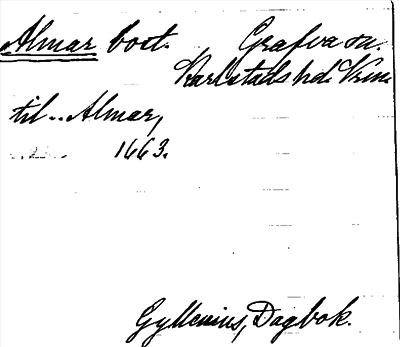 Almar bost. Grafva sn.
Karlstads hd. Vrml.
til .. Almar,
1663.
Gyllenius, Dagbok.